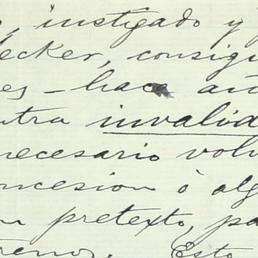 , instigado y
ecker, consigu
es - hace añ
utra invalid
necesario volv
oncesion ò alg
un pretexto, pa
renos. Esto